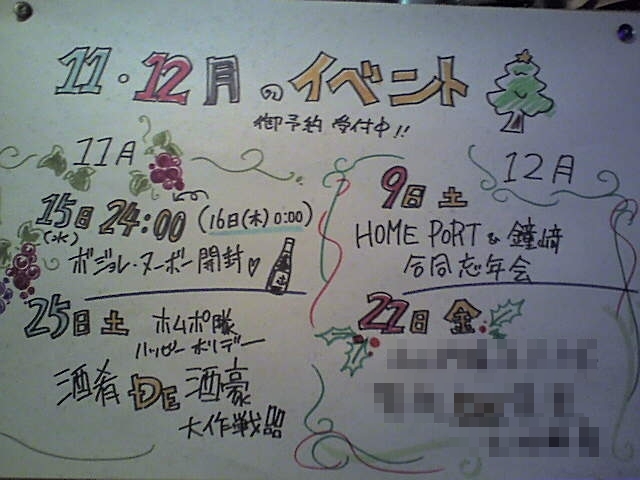 11・12月のイベント
御予約 受付中!!
11月
15日(水) 24:00 (16日(木) 0:00)
ボジョレ・ヌーボー開封♡
25日 土 ホムポ隊
ハッピーホリデー
酒肴 DE 酒豪
大作戦
12月
9日 土
HOME PORT & 鐘崎
合同忘年会
22日 金